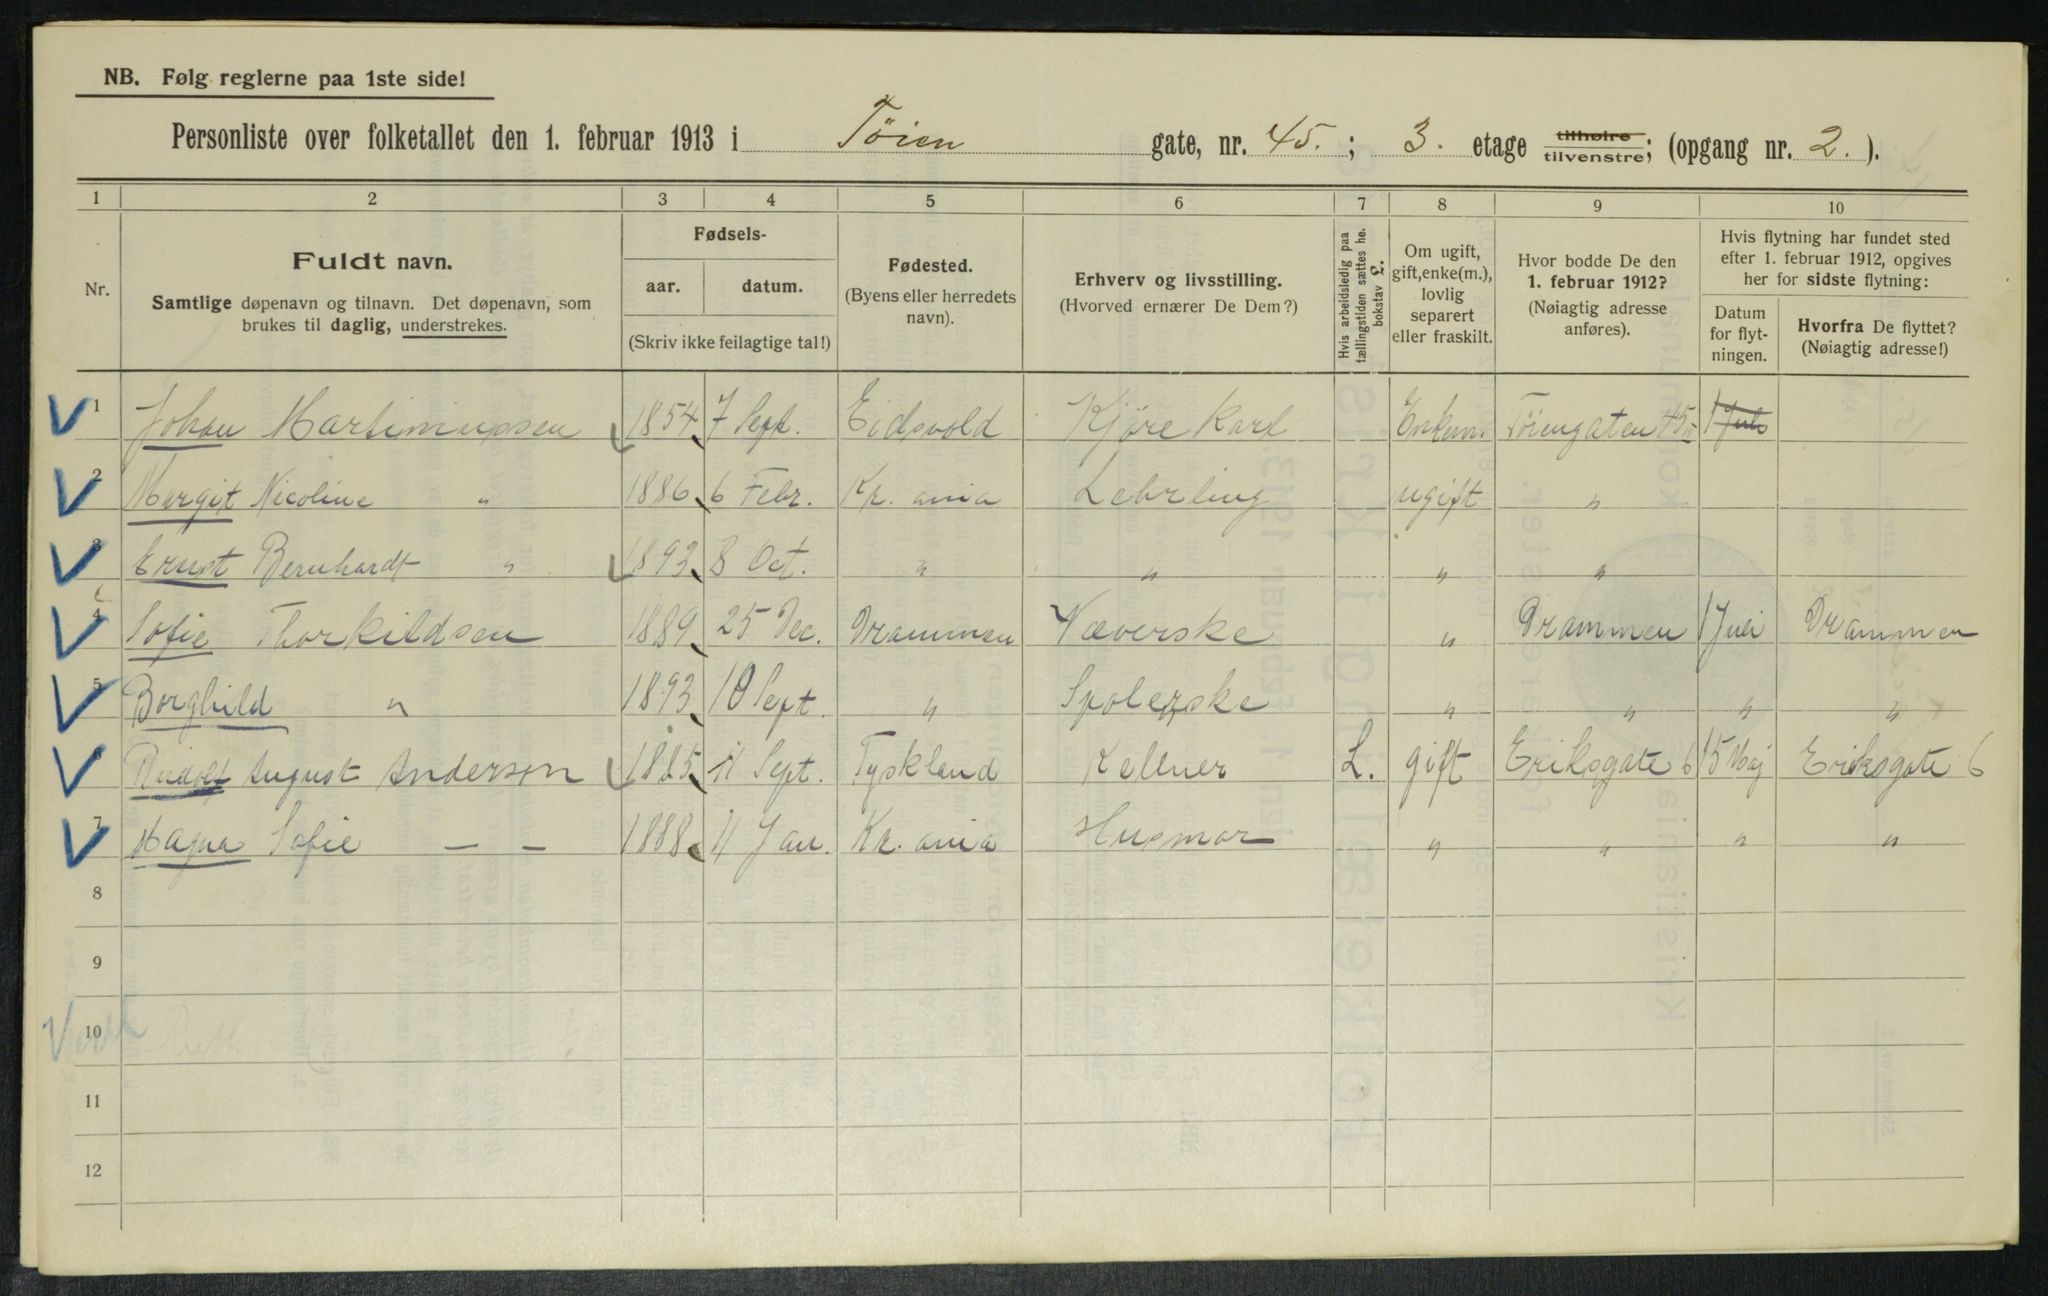 NB. Følg reglerne paa 1ste side!
Personliste over folketallet den 1. februar 1913 i Töien gate, nr. 45. ; 3. etage tilhøire tilvenstre; (opgang nr. 2. ).
1 2 3 4 5 6 7 8 9 10
Nr.
Fuldt navn.
Samtlige døpenavn og tilnavn. Det døpenavn, som
brukes til daglig, understrekes.
Fødsels-
aar. datum.
(Skriv ikke feilagtige tal!)
Fødested.
(Byens eller herredets
navn).
Erhverv og livsstilling.
(Hvorved ernærer De Dem?)
Hvis arbeidsledig paa
tællingstiden sættes he.
bokstav L.
Om ugift,
gift, enke(m.),
lovlig
separert
eller fraskilt.
Hvor bodde De den
1. februar 1912?
(Nøiagtig adresse
anføres).
Hvis flytning har fundet sted
efter 1. februar 1912, opgives
her for sidste flytning:
Datum
for flyt-
ningen.
Hvorfra De flyttet?
(Nøiagtig adresse!)
1 Johan Martiniussen 1854 7 Sept. Eidsvold Kjöre Karl Enkem. Töiengaten 45 III 1 Juli
2 Margit Nicoline " 1886 6 Febr. Kr. ania Lehrling ugift "
3 Ernst Bernhardt " 1893 8 Oct. " " " "
4 Sofie Thorkildsen 1889 25 Dec. Drammen Væverske " Drammen 1 Juli Drammen
5 Borghild " 1893 10 Sept. " Spolerske " " " "
6 Rudolf August Anderson 1885 11 Sept. Tyskland Kellner L. gift Eriksgate 6 15 Maj Eriksgate 6
7 Magna Sofie — — 1888 11 Jan. Kr. ania Husmor " " " "
8
9
10 Ruth
11
12